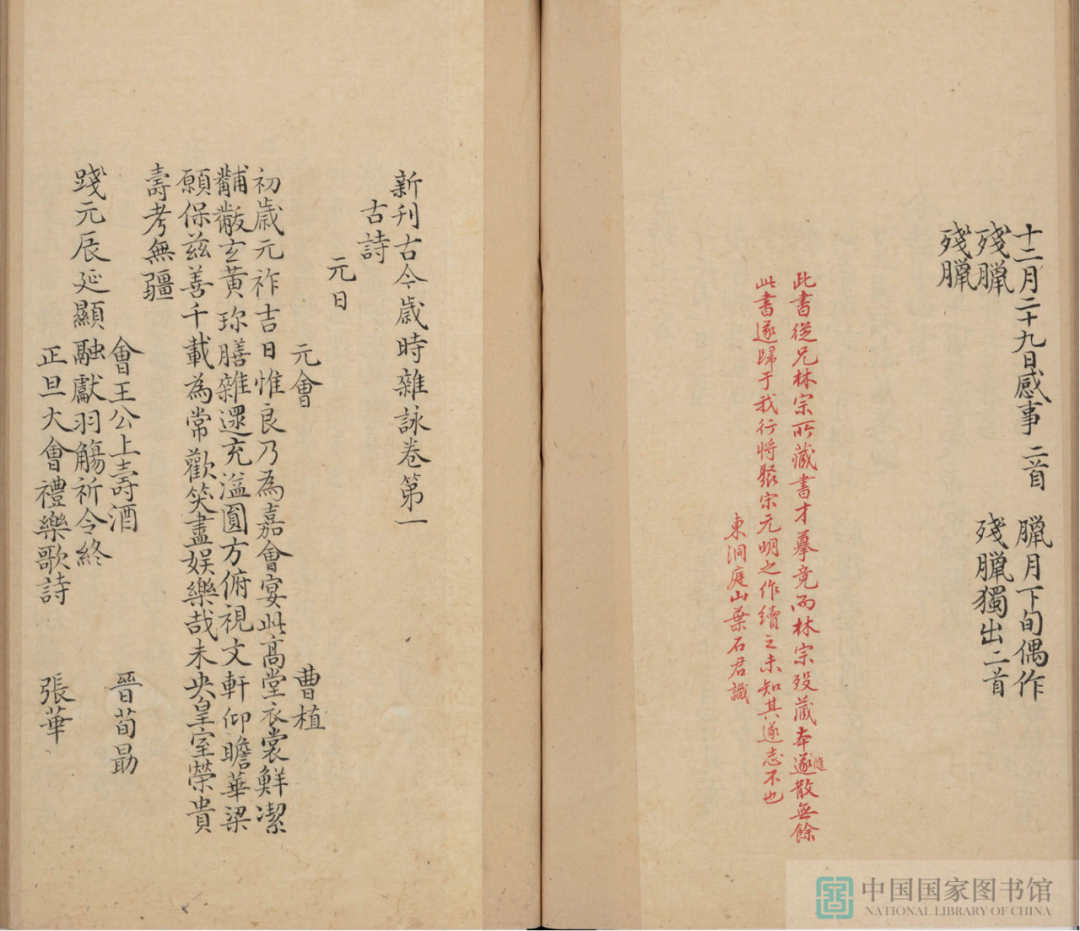 十二月二十九日感事 二首　臘月下旬偶作
殘臘　殘臘獨出二首
殘臘
此書從兄林宗所藏書才摹竟而林宗歿藏本遂散無餘
隨
此書遂歸于我行將聚宋元明之作續之未知其遂志不也
東洞庭山葉石君識
新刊古今歲時雜詠卷第一
古詩
元日
元會　曹植
初歲元祚吉日惟良乃為嘉會宴此高堂衣裳鮮潔
黼黻玄黃珍膳雜遝充溢圓方俯視文軒仰瞻華梁
願保茲善千載為常歡笑盡娛樂哉未央皇室榮貴
壽考無疆
會王公上壽酒　晉荀勗
踐元辰延顯融獻羽觴祈令終
正旦大會禮樂歌詩　張華
中国国家图书馆
NATIONAL LIBRARY OF CHINA